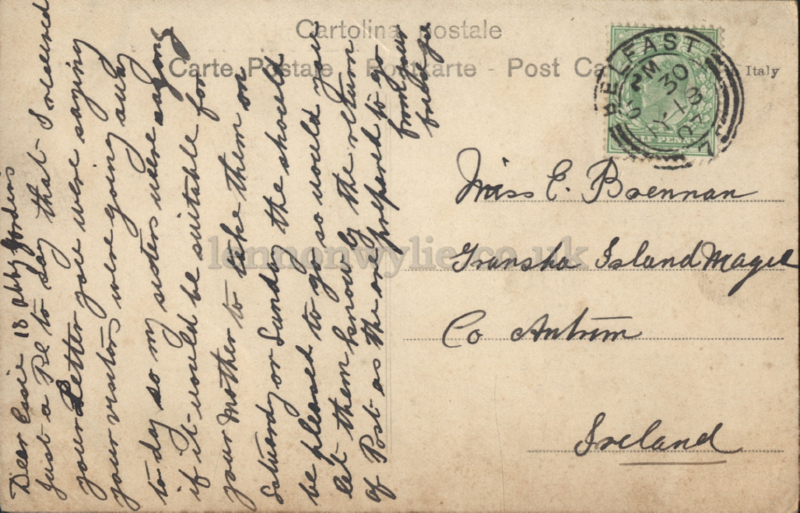 Cartolina postale
Carte Postale - Postkarte - Post Ca
Italy
BELFAST
30
PENNY
Miss C. Brennan
Island Magee
Co Antrim
Ireland
Dear Casie 18 Gordens
Just a P.C to day that I received
your Letter you were saying
your visitors were going away
to day so my sisters were saying
if it would be suitable for
your Mother to take them on
Saturday or Sunday the should
be pleased to go so would you
let them know by the return
of Post as the are prepared to go
from your
lennonwylie.co.uk